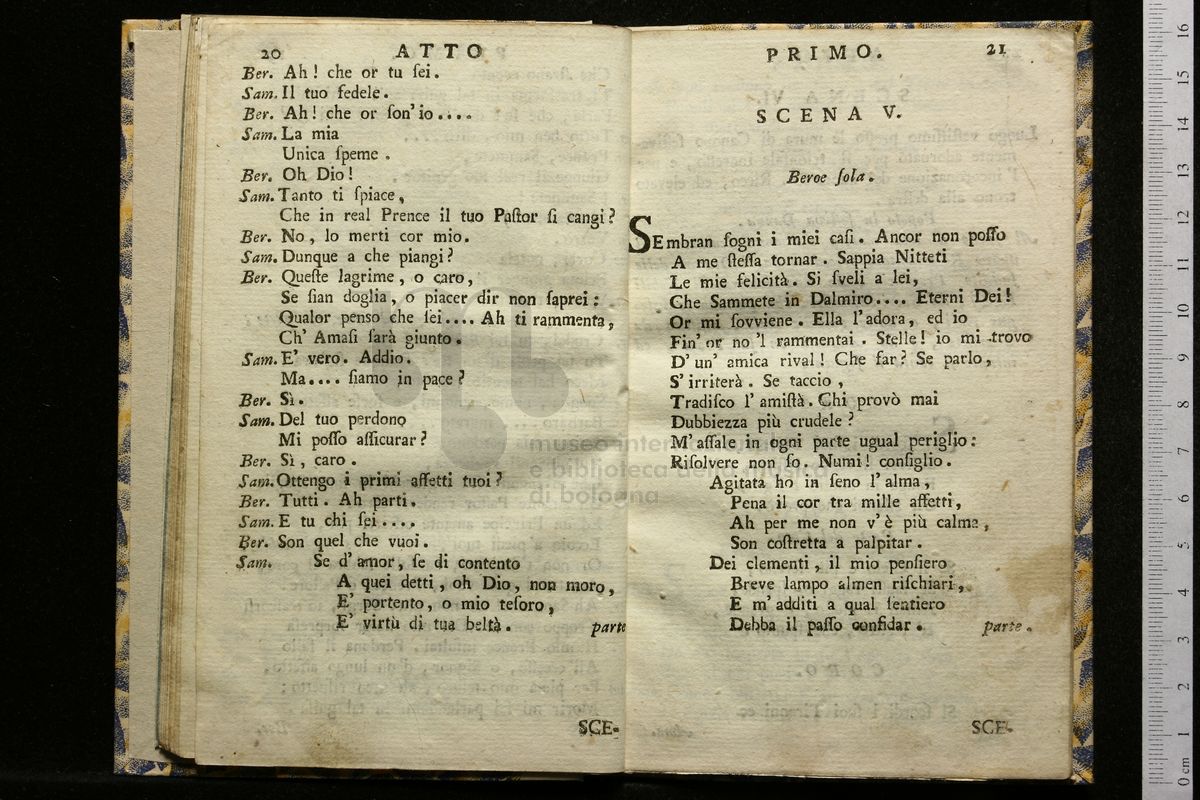 20 ATTO
Ber. Ah! che or tu ſei.
Sam. Il tuo fedele.
Ber. Ah! che or ſon' io....
Sam. La mia
Unica ſpeme.
Ber. Oh Dio!
Sam. Tanto ti ſpiace,
Che in real Prence il tuo Paſtor ſi cangi?
Ber. No, lo merti cor mio.
Sam. Dunque a che piangi?
Ber. Queſte lagrime, o caro,
Se ſian doglia, o piacer dir non ſaprei:
Qualor penso che ſei.... Ah ti rammenta,
Ch' Amaſi ſarà giunto.
Sam. E' vero. Addio.
Ma.... ſiamo in pace?
Ber. Sì.
Sam. Del tuo perdono
Mi poſſo aſſicurar?
Ber. Sì, caro.
Sam. Ottengo i primi affetti tuoi?
Ber. Tutti. Ah parti.
Sam. E tu chi ſei....
Ber. Son quel che vuoi.
Sam. Se d' amor, ſe di contento
A quei detti, oh Dio, non moro,
E' portento, o mio teſoro,
E' virtù di tua beltà. parte
SCE-
PRIMO. 21
SCENA V.
Beroe ſola.
SEmbran ſogni i miei caſi. Ancor non poſſo
A me ſteſſa tornar. Sappia Nitteti
Le mie felicità. Si ſveli a lei,
Che Sammete in Dalmiro.... Eterni Dei!
Or mi ſovviene. Ella l'adora, ed io
Fin' or no 'l rammentai. Stelle! io mi trovo
D' un' amica rival! Che far? Se parlo,
S' irriterà. Se taccio,
Tradiſco l' amiſtà. Chi provò mai
Dubbiezza più crudele?
M' aſſale in ogni parte ugual periglio:
Riſolvere non ſo. Numi! conſiglio.
Agitata ho in ſeno l' alma,
Pena il cor tra mille affetti,
Ah per me non v' è più calma,
Son coſtretta a palpitar.
Dei clementi, il mio penſiero
Breve lampo almen riſchiari,
E m' additi a qual ſentiero
Debba il paſſo confidar. parte.
SCE-
museo inter
e biblioteca della musica
di bologna
0 cm 1 2 3 4 5 6 7 8 9 10 11 12 13 14 15 16